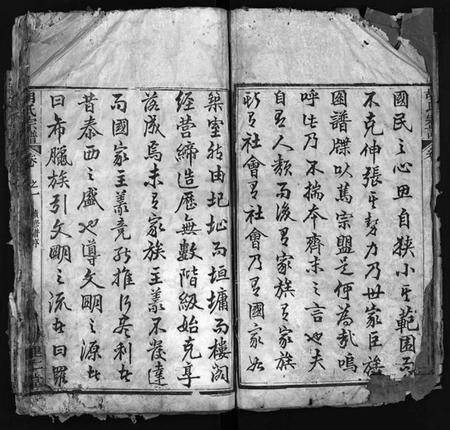 國民之心毌自狹小其範圍而
不克伸張其勢力乃世家巨族
圖譜牒以篤宗盟是何為哉嗚
呼此乃不揣本齊末之言也夫
自有人類而後有家族有家族
斯有社會有社會乃有國家如
築室然由圯址而垣墉而樓閣
經营締造歷無數階級始克享
落成焉未有家族主義不發達
而國家主義竟能推行盡利者
昔泰西之盛也導文明之源者
曰希臘族引文明之流者曰羅
胡氏宗譜 卷之一